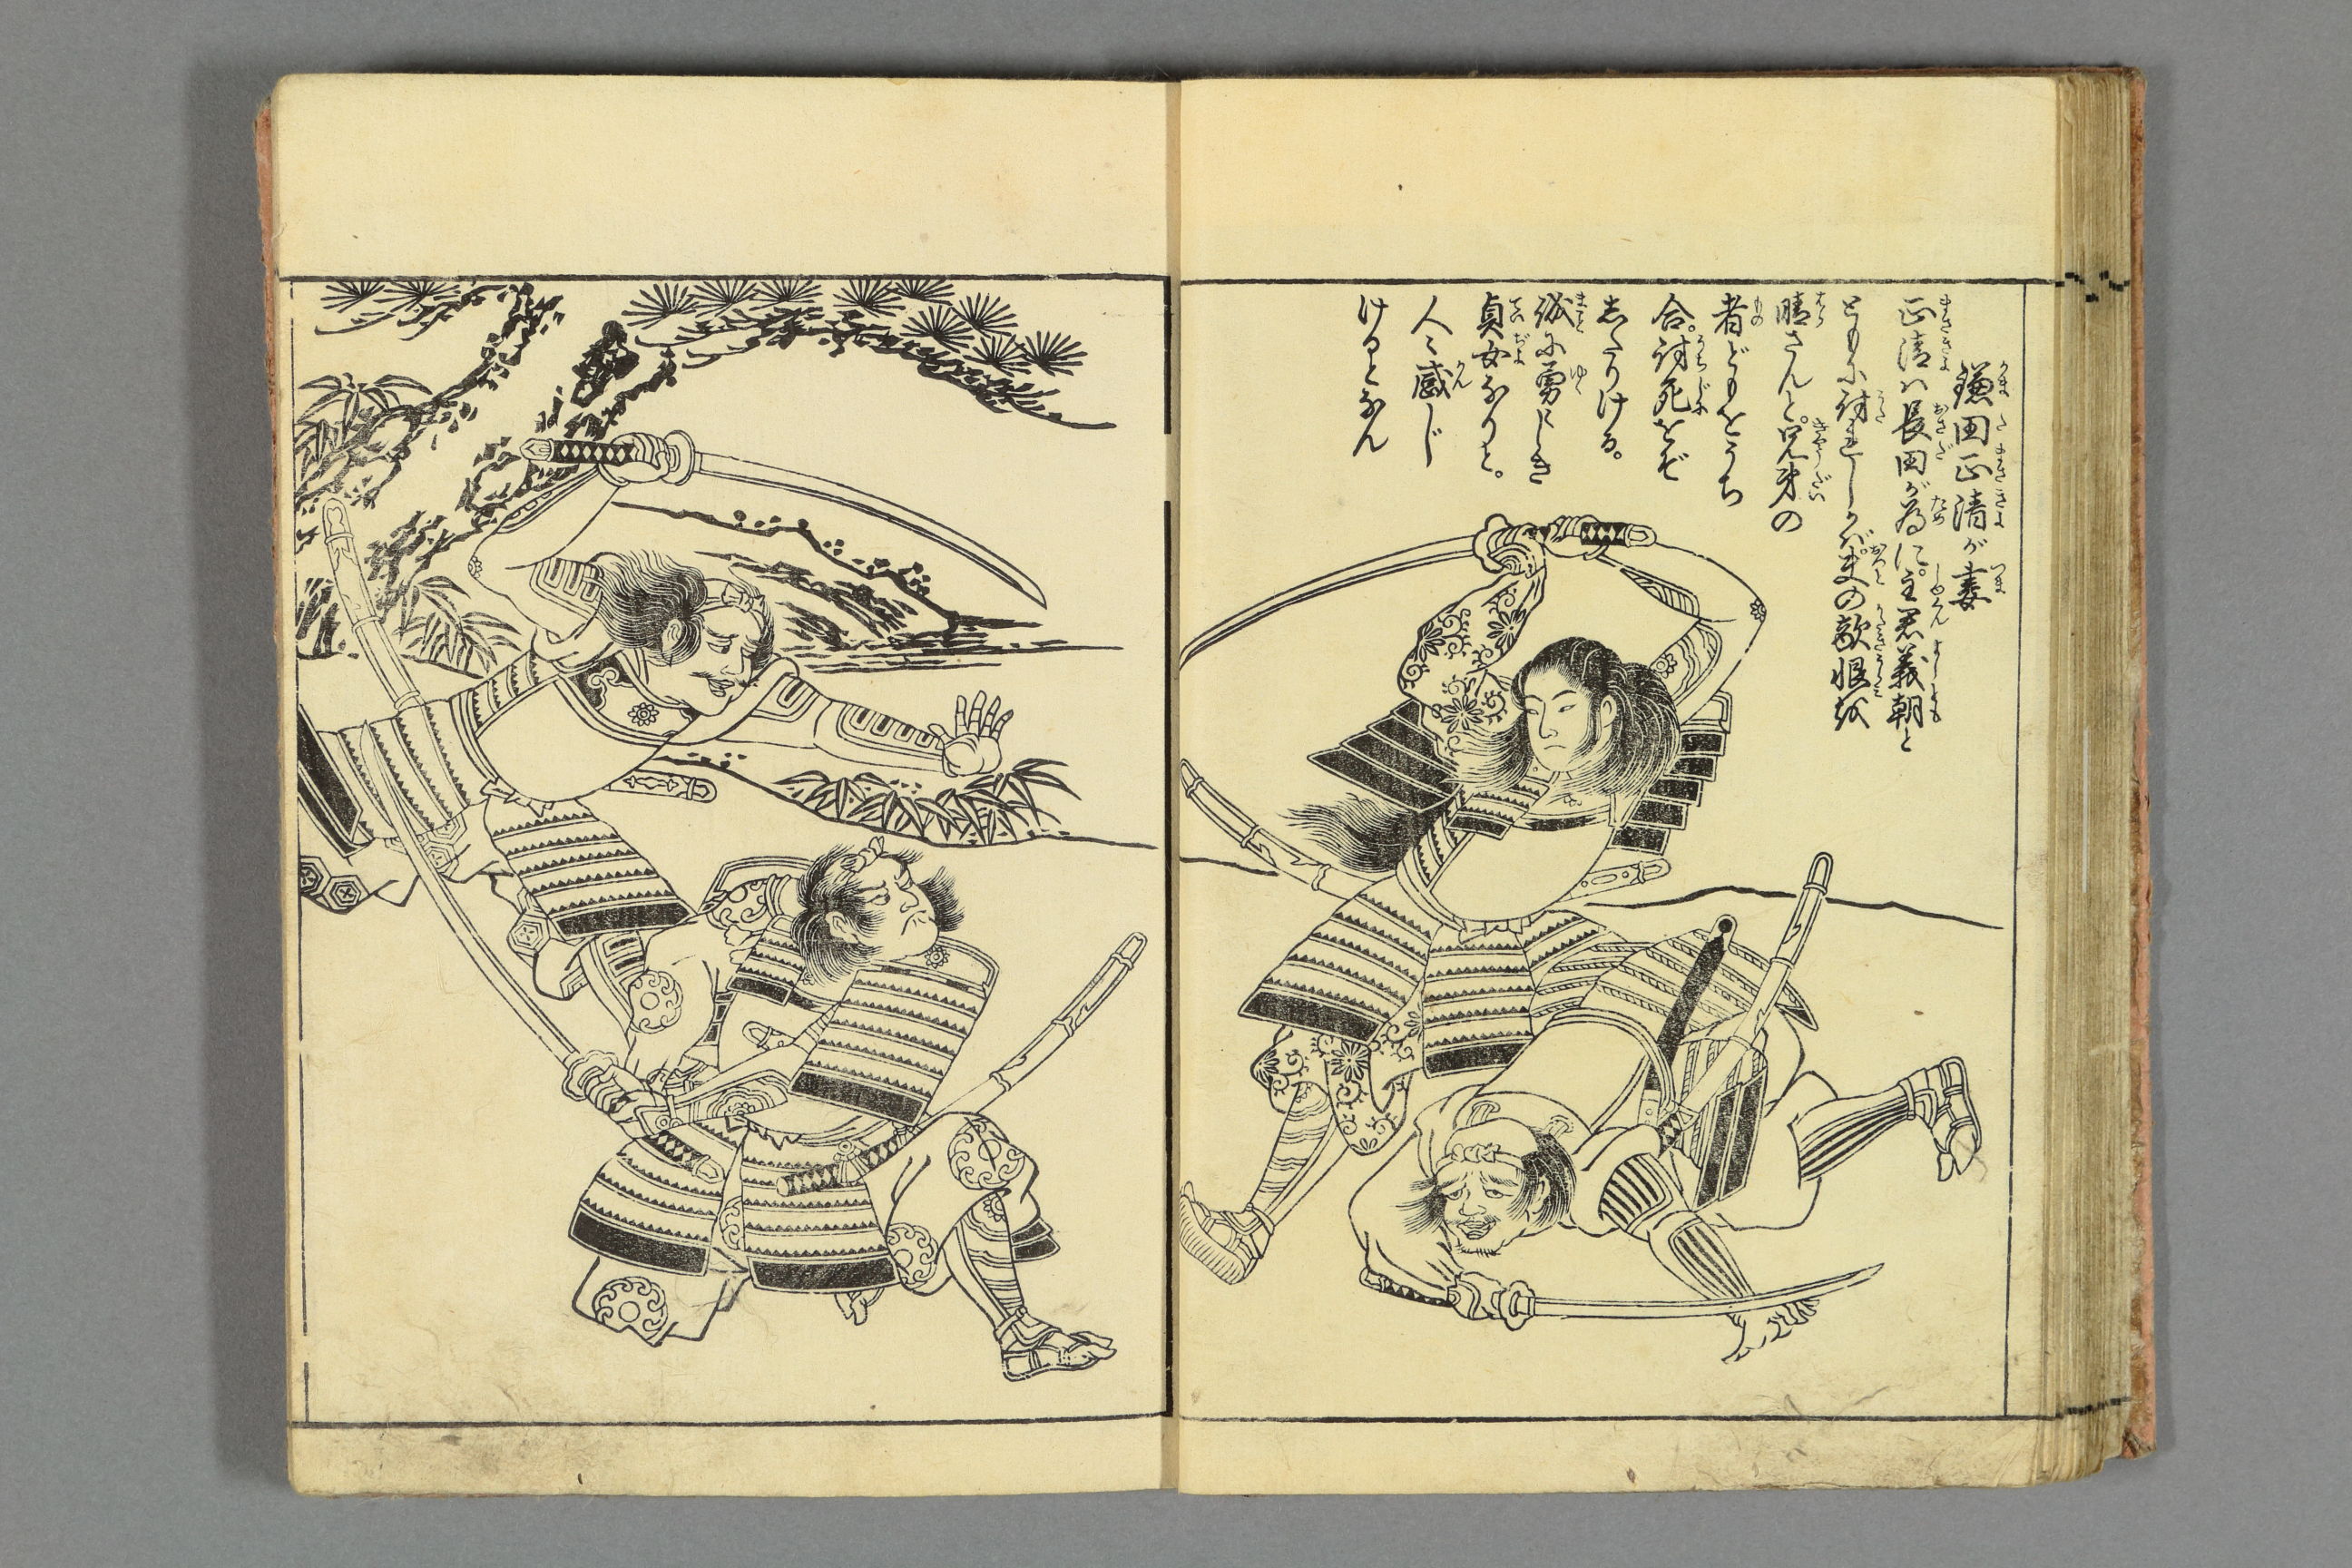 鎌田正清が妻
正清ハ長田が為に。主君義朝と
ともに討れしかバ。夫の敵恨を
晴さんと。兄弟の
者どもとうち
合。討死をぞ
したりける。
誠に勇ましき
貞女なりと。
人々感じ
けるとなん